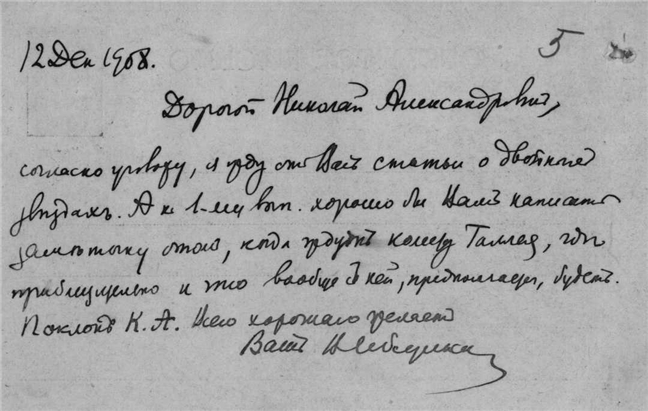 5
12 Дек 1908.
Дорогой Николай Александровичъ,
согласно уговору, я жду отъ Васъ статьи о двойныхъ
звѣздахъ. А къ 1-му вып. хорошо бы Вамъ написать
замѣтку о томъ, когда ждутъ комету Галлея, гдѣ
приблизительно и что вообще съ ней, предполагаютъ, будетъ.
Поклонъ К. А. Всего хорошаго желаетъ
Вашъ